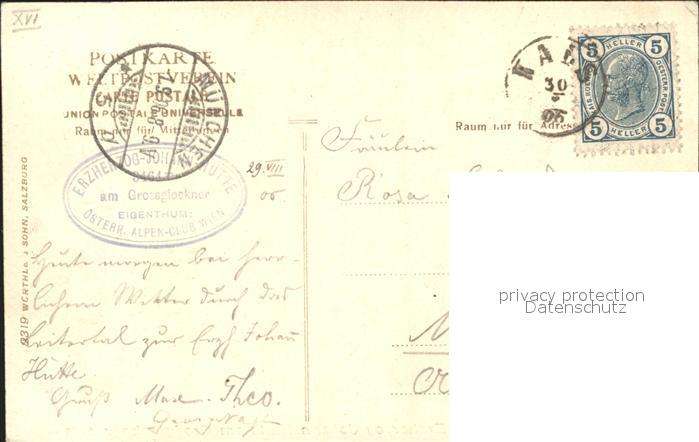 XVI
POSTKARTE
WELTPOSTVEREIN
CARTE POSTALE
UNION POSTALE UNIVERSELLE
Raum nur für Mitteilungen
MÜNCHEN
KALS
30
06
5 HELLER 5
5 HELLER 5
Raum nur für Adresse
ERZHERZOG-JOHANN-HÜTTE
3464
am Grossglockner
EIGENTHUM:
ÖSTERR. ALPEN-CLUB WIEN
29. VIII
06.
9319 WÜRTHLE & SOHN, SALZBURG
Heute morgen bei herr-
lichem Wetter durch das
Leitertal zur Erzh Johann
Hütte.
Gruß Max. Theo.
Georg
Fräulein
Rosa
privacy protection
Datenschutz